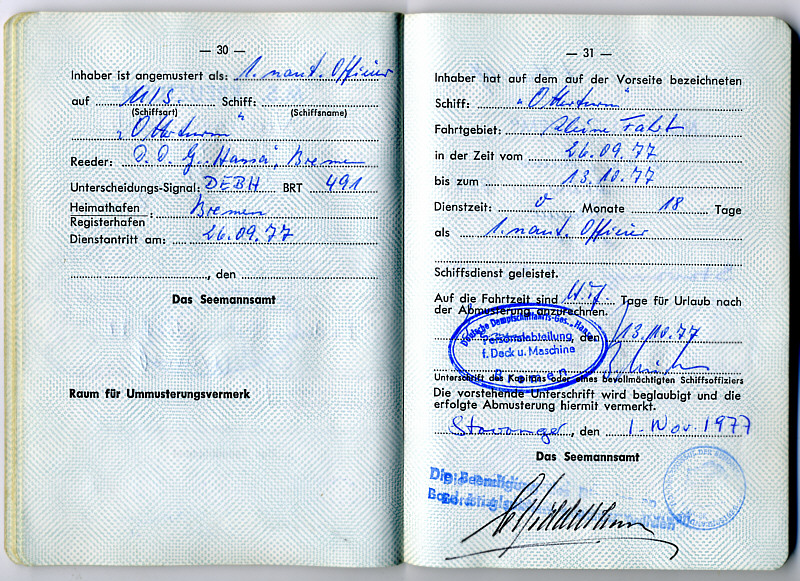 — 30 —
Inhaber ist angemustert als: 1. naut. Offizier
auf M/S. Schiff:
(Schiffsart) (Schiffsname)
„Otterturm"
Reeder: D. D. G. „Hansa", Bremen
Unterscheidungs-Signal: DEBH BRT 491
Heimathafen
Registerhafen : Bremen
Dienstantritt am: 26.09.77
, den
Das Seemannsamt
Raum für Ummusterungsvermerk
— 31 —
Inhaber hat auf dem auf der Vorseite bezeichneten
Schiff: „Otterturm"
Fahrtgebiet: kleine Fahrt
in der Zeit vom 26.09.77
bis zum 13.10.77
Dienstzeit: 0 Monate 18 Tage
als 1. naut. Offizier
Schiffsdienst geleistet.
Auf die Fahrtzeit sind Tage für Urlaub nach
der Abmusterung anzurechnen.
Deutsche Dampfschifffahrts-Ges. „Hansa"
Personalabteilung
f. Deck u. Maschine
Bremen
, den 13.10.77
Unterschrift des Kapitäns oder eines bevollmächtigten Schiffsoffiziers
Die vorstehende Unterschrift wird beglaubigt und die
erfolgte Abmusterung hiermit vermerkt.
Stavanger, den 1. Nov. 1977
Das Seemannsamt